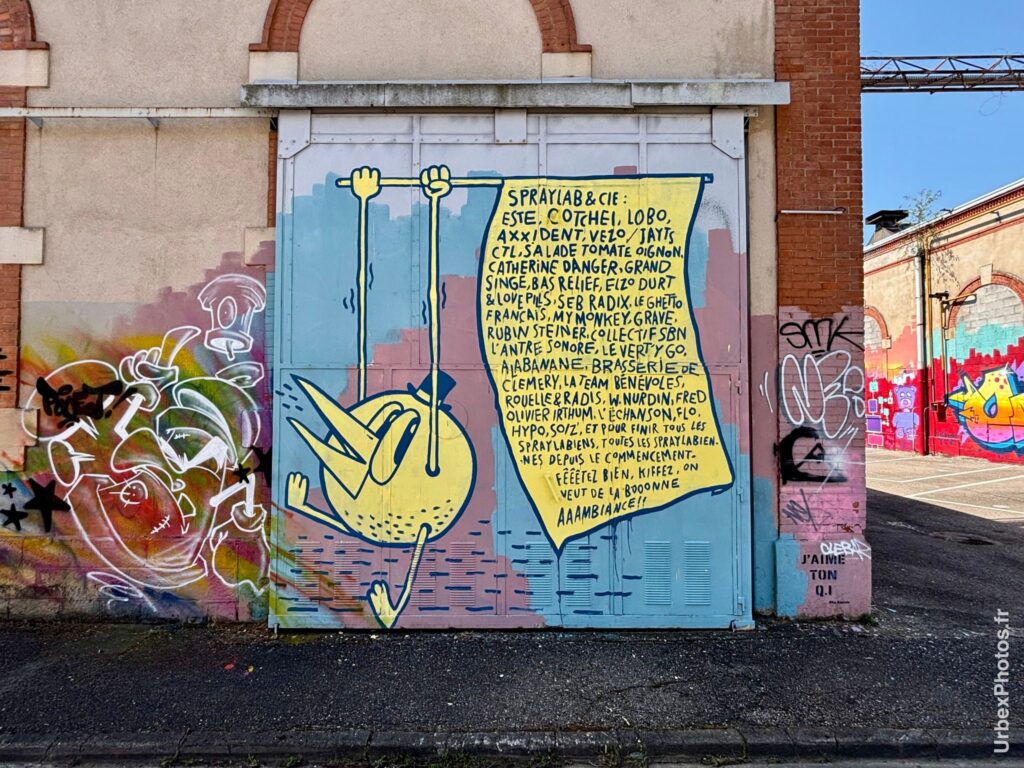 SPRAYLAB & CIE :
ESTE, COTCHEI, LOBO,
AXXIDENT, VEZO / JAYTS
CTL, SALADE TOMATE OIGNON,
CATHERINE DANGER, GRAND
SINGE, BAS RELIEF, ELZO DURT
& LOVEPILS, SEB RADIX, LE GHETTO
FRANÇAIS, MY MONKEY, GRAVE,
RUBIN STEINER, COLLECTIF SBN
L'ANTRE SONORE, LE VERTYGO,
AJABANANE, BRASSERIE DE
CLEMERY, LA TEAM BÉNÉVOLES,
ROUELLE & RADIS, W. NURDIN, FRED
OLIVIER IRTHUM, L'ÉCHANSON, FLO,
HYPO, SOIZ', ET POUR FINIR TOUS LES
SPRAYLABIENS, TOUTES LES SPRAYLABIEN-
-NES DEPUIS LE COMMENCEMENT.
FÊÊÊTEZ BIEN, KIFFEZ, ON
VEUT DE LA BOOONNE
AAAMBIANCE !!
SMK
J'AIME
TON
Q.I
UrbexPhotos.fr